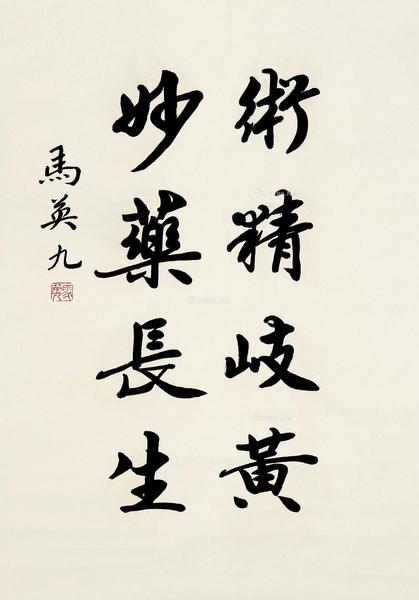 術精岐黃
妙藥長生
馬英九